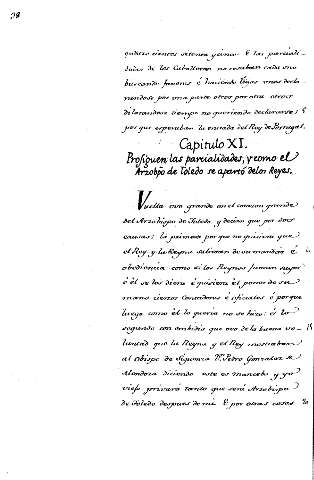 98
quatro cientos setenta y cinco. E las parciali-
dades de los Caballeros no cesaban cada uno
buscando favores é haciendo Ligas unos decla-
randose por una parte otros por otra otros
dilatandose tiempo no queriendo declararse;
porque esperaban la entrada del Rey de Portugal.
Capitulo XI.
Prosiguen las parcialidades, y como el
Arzobpo de Toledo se apartó de los Reyes.
Vuelta era grande en el corazon grande
del Arzobispo de Toledo, y decian que por dos
causas: la primera porque no quisiera que
el Rey, y la Reyna salieran de su mandado é
obediencia como si los Reynos fueran suyos
é él se los diera é pusiera el poner de su
mano ciertos Contadores é oficiales é porque
luego como él lo queria no se hizo: é lo
segundo con embidia que ovo de la buena vo-
luntad que la Reyna y el Rey mostraban
al Obispo de Siguenza Dn. Pedro Gonzalez de
Mendoza diciendo este es mancebo y yo
viejo privará tanto que será Arzobispo
de Toledo despues de mi. E por otras cosas